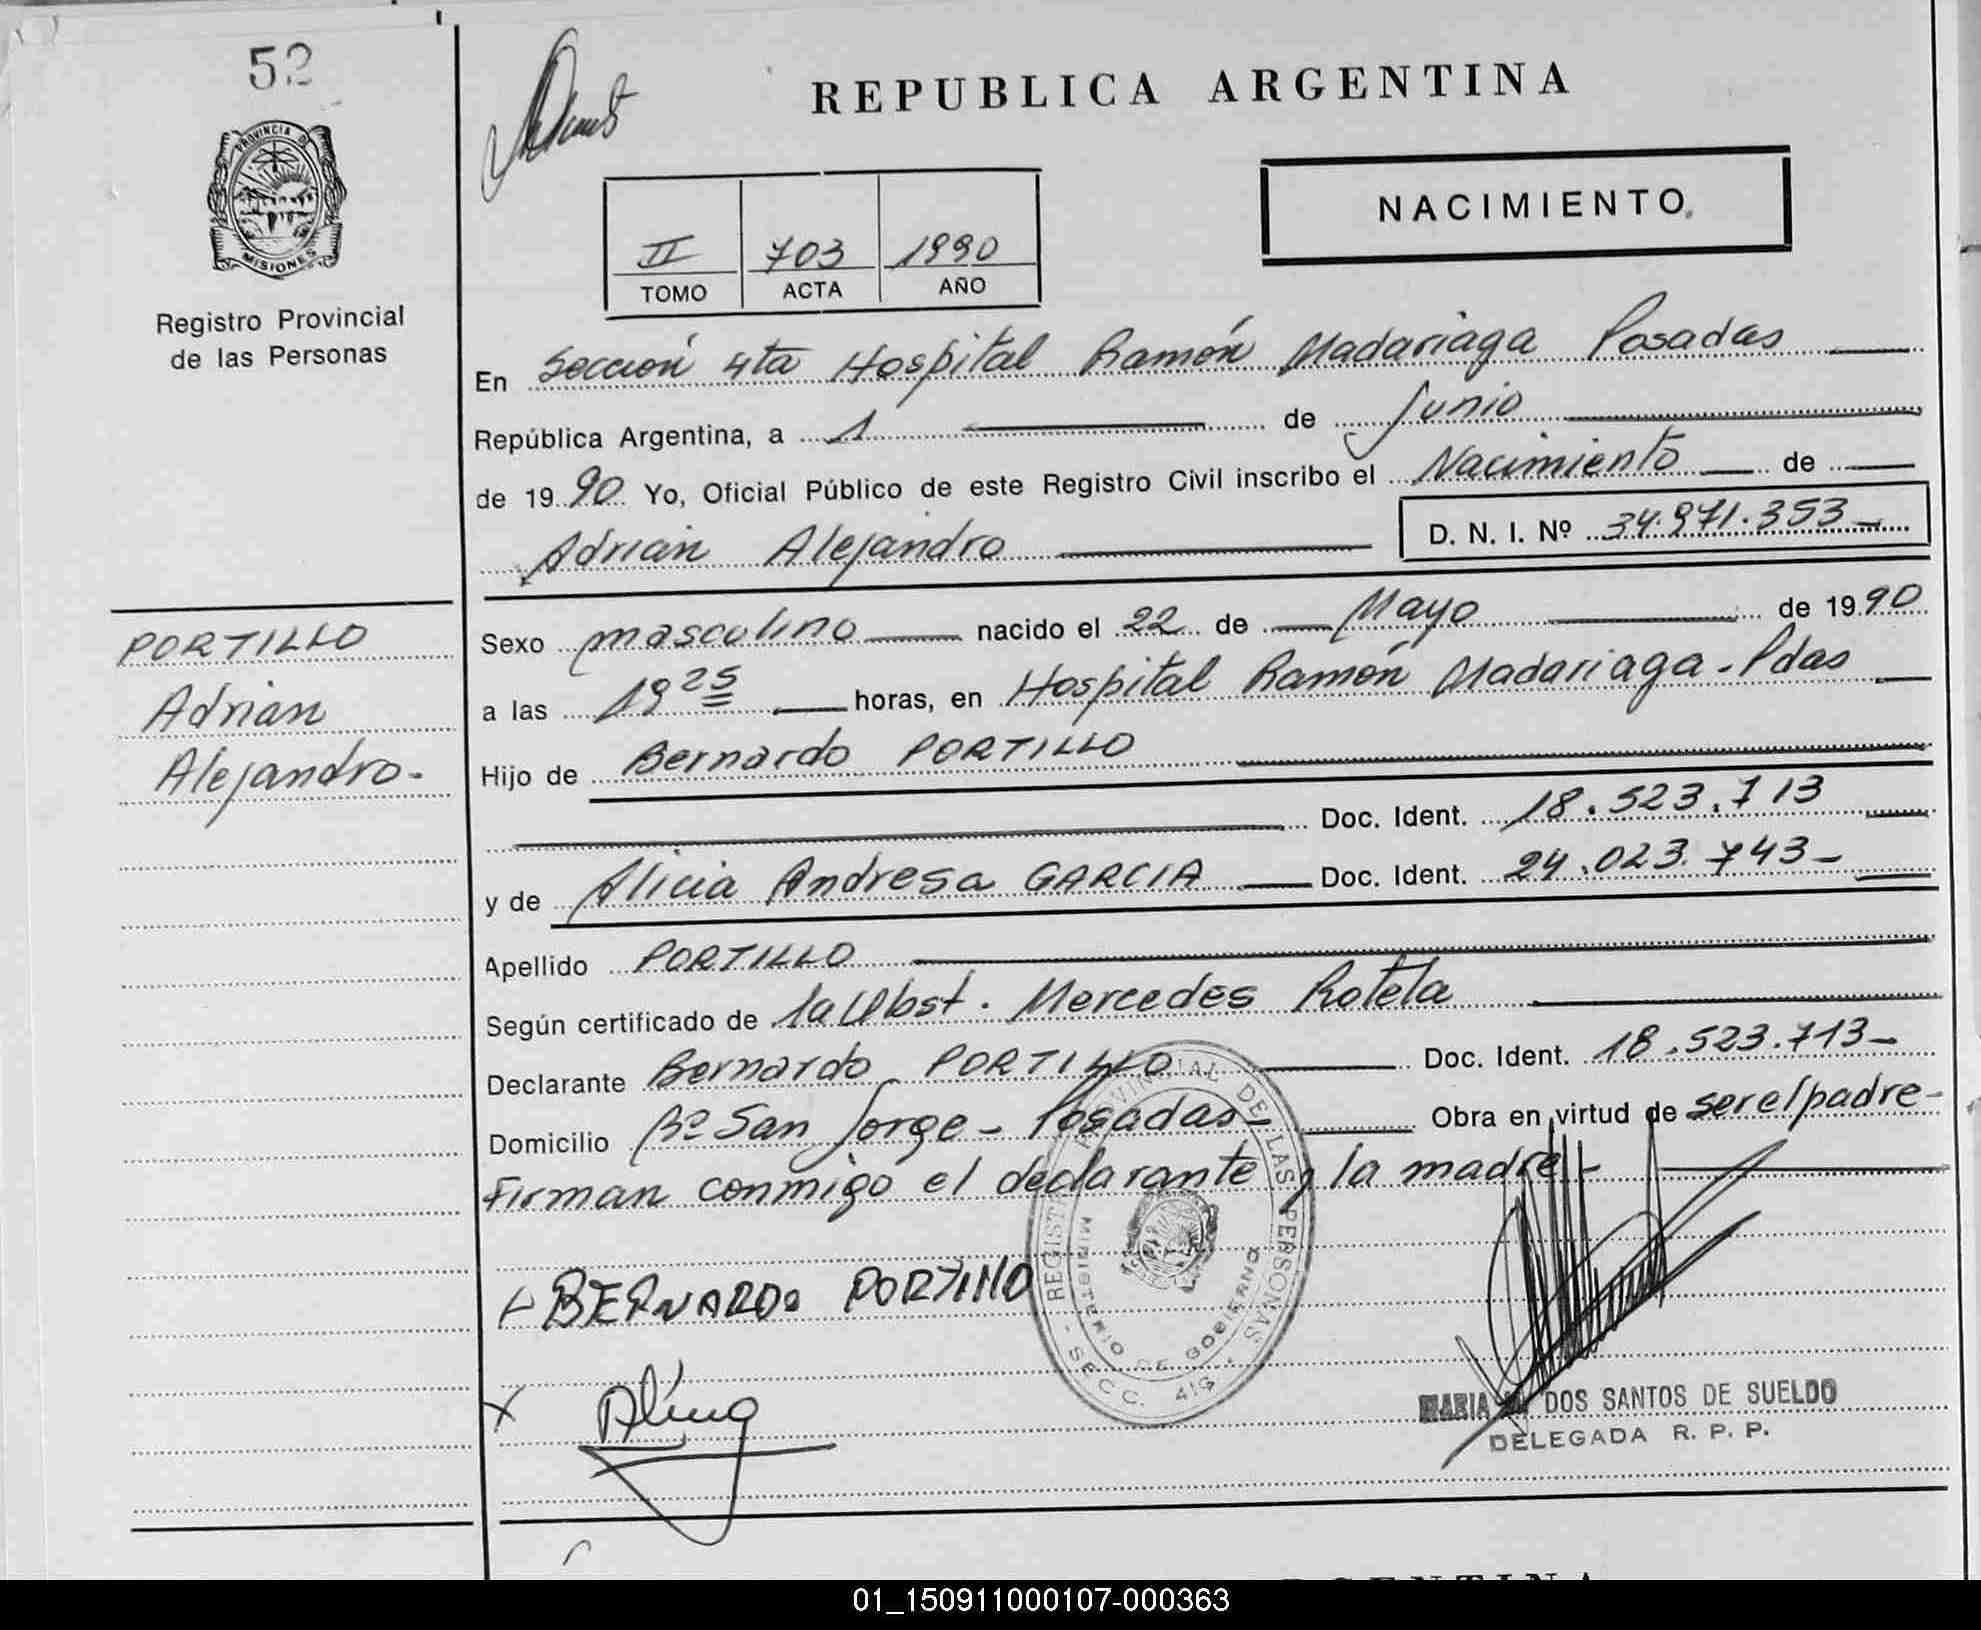 52
REPUBLICA ARGENTINA
PROVINCIA DE
MISIONES
Registro Provincial
de las Personas
NACIMIENTO
II 703 1990
TOMO ACTA AÑO
En Sección 4ta Hospital Ramón Madariaga Posadas
República Argentina, a 1 de Junio
de 1990 Yo, Oficial Público de este Registro Civil inscribo el Nacimiento de
Adrian Alejandro D. N. I. Nº 34.971.353
PORTILLO
Adrian
Alejandro.
Sexo masculino nacido el 22 de Mayo de 1990
a las 19 25 horas, en Hospital Ramón Madariaga - Pdas
Hijo de Bernardo PORTILLO
Doc. Ident. 18.523.713
y de Alicia Andresa GARCIA Doc. Ident. 24.023.743-
Apellido PORTILLO
Según certificado de la Obst. Mercedes Rotela
Declarante Bernardo PORTILLO Doc. Ident. 18.523.713-
Domicilio Bº San Jorge - Posadas - Obra en virtud de ser el padre-
Firman conmigo el declarante y la madre.-
BERNARDO PORTILLO
REGISTRO PROVINCIAL DE LAS PERSONAS
MINISTERIO DE GOBIERNO
SECC. 4ta
MARIA DOS SANTOS DE SUELDO
DELEGADA R. P. P.
01_150911000107-000363